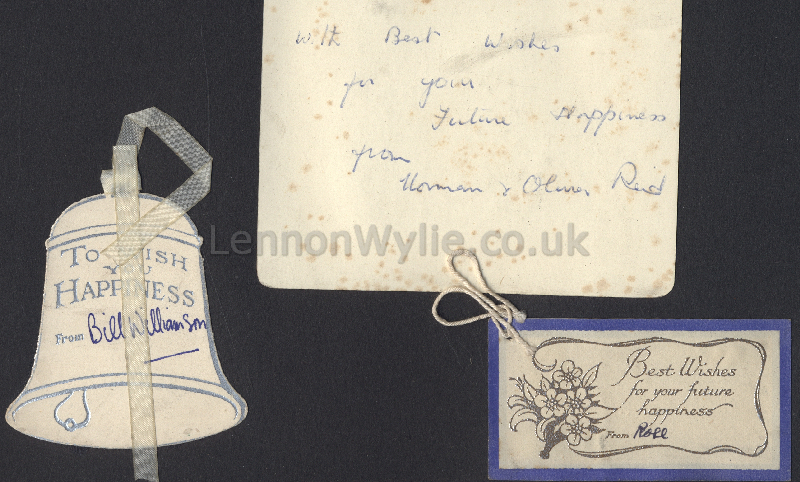 With Best Wishes
for your
Future Happiness
from
Norman & Oliver Reid
LennonWylie.co.uk
TO WISH
YOU
HAPPINESS
From Bill Williamson
Best Wishes
for your future
happiness
From